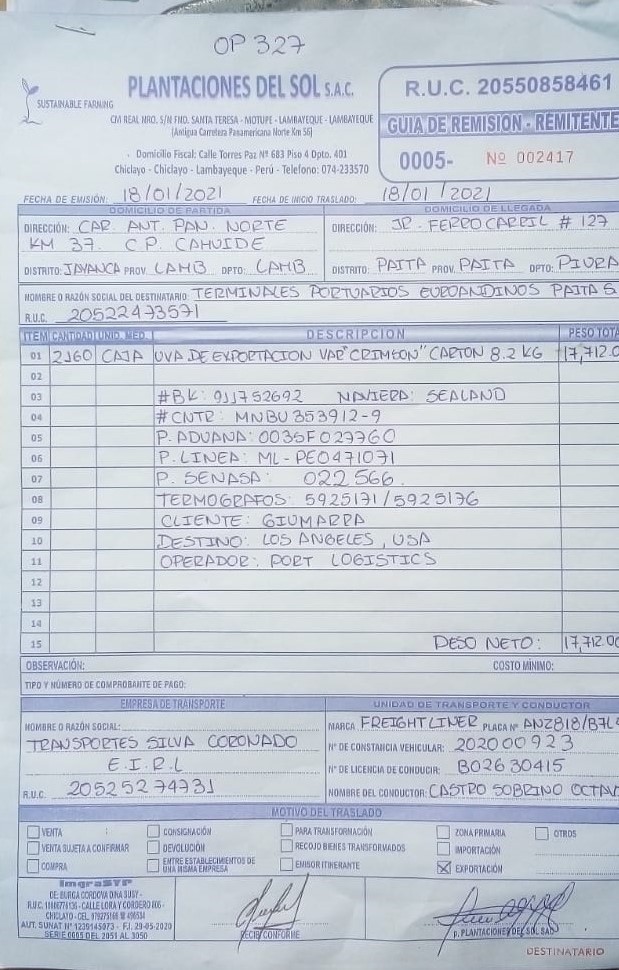 OP 327
SUSTAINABLE FARMING
PLANTACIONES DEL SOL S.A.C.
CM REAL NRO. S/N FND. SANTA TERESA - MOTUPE - LAMBAYEQUE - LAMBAYEQUE
(Antigua Carretera Panamericana Norte Km 56)
Domicilio Fiscal: Calle Torres Paz Nº 683 Piso 4 Dpto. 401
Chiclayo - Chiclayo - Lambayeque - Perú - Telefono: 074-233570
R.U.C. 20550858461
GUIA DE REMISION - REMITENTE
0005- Nº 002417
FECHA DE EMISIÓN: 18/01/2021 FECHA DE INICIO TRASLADO: 18/01/2021
DOMICILIO DE PARTIDA
DIRECCIÓN: CAR. ANT. PAN. NORTE
KM 37. C.P. CAHUIDE
DISTRITO: JAYANCA PROV. LAMB. DPTO: LAMB.
DOMICILIO DE LLEGADA
DIRECCIÓN: JR. FERROCARRIL # 127
DISTRITO: PAITA PROV. PAITA DPTO: PIURA
NOMBRE O RAZÓN SOCIAL DEL DESTINATARIO: TERMINALES PORTUARIOS EUROANDINOS PAITA S
R.U.C. 20522473571
ITEM CANTIDAD UNID. MED. DESCRIPCION PESO TOTA
01 2160 CAJA UVA DE EXPORTACION VAR "CRIMSON" CARTON 8.2 KG 17,712.0
02
03 #BK: 911752692 NAVIERA: SEALAND
04 #CNTR: MNBU 353912-9
05 P. ADUANA: 0035F027760
06 P. LINEA: ML-PE0471071
07 P. SENASA: 022566.
08 TERMOGRAFOS: 5925171/5925176
09 CLIENTE: GIUMARRA
10 DESTINO: LOS ANGELES, USA
11 OPERADOR: PORT LOGISTICS
12
13
14
15 PESO NETO: 17,712.00
OBSERVACIÓN: COSTO MÍNIMO:
TIPO Y NÚMERO DE COMPROBANTE DE PAGO:
EMPRESA DE TRANSPORTE
NOMBRE O RAZÓN SOCIAL:
TRANSPORTES SILVA CORONADO
E.I.R.L
R.U.C. 20525274731
UNIDAD DE TRANSPORTE Y CONDUCTOR
MARCA FREIGHTLINER PLACA Nº ANZ818/B7L
Nº DE CONSTANCIA VEHICULAR: 202000923
Nº DE LICENCIA DE CONDUCIR: B02630415
NOMBRE DEL CONDUCTOR: CASTRO SOBRINO OCTAV
MOTIVO DEL TRASLADO
VENTA : CONSIGNACIÓN PARA TRANSFORMACIÓN ZONA PRIMARIA OTROS
VENTA SUJETA A CONFIRMAR DEVOLUCIÓN RECOJO BIENES TRANSFORMADOS IMPORTACIÓN
COMPRA ENTRE ESTABLECIMIENTOS DE UNA MISMA EMPRESA EMISOR ITINERANTE EXPORTACIÓN
DE: BURGA CORDOVA DINA SUSY -
CHICLAYO - CEL.
AUT. SUNAT Nº 1239145073 - F.I. 29-05-2020
SERIE 0005 DEL 2051 AL 3050
RECIBI CONFORME
p. PLANTACIONES DEL SOL SAC
DESTINATARIO